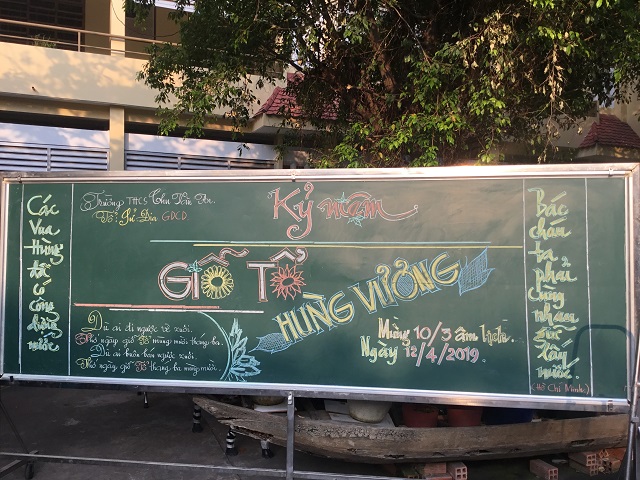 Các
Vua
Hùng
đã có
công
dựng
nước
Trường THCS Chu Văn An.
Tổ: Sử - Địa - GDCD
Kỷ niệm
GIỖ TỔ
HÙNG VƯƠNG
Mùng 10/3 âm lịch.
Ngày 12/4/2019.
Dù ai đi ngược về xuôi.
Nhớ ngày giỗ Tổ mùng mười tháng ba.
Dù ai buôn bán ngược xuôi.
Nhớ ngày giỗ Tổ tháng ba mùng mười.
Bác
cháu
ta
phải
Cùng
nhau
giữ
lấy
nước.
(Hồ Chí Minh)